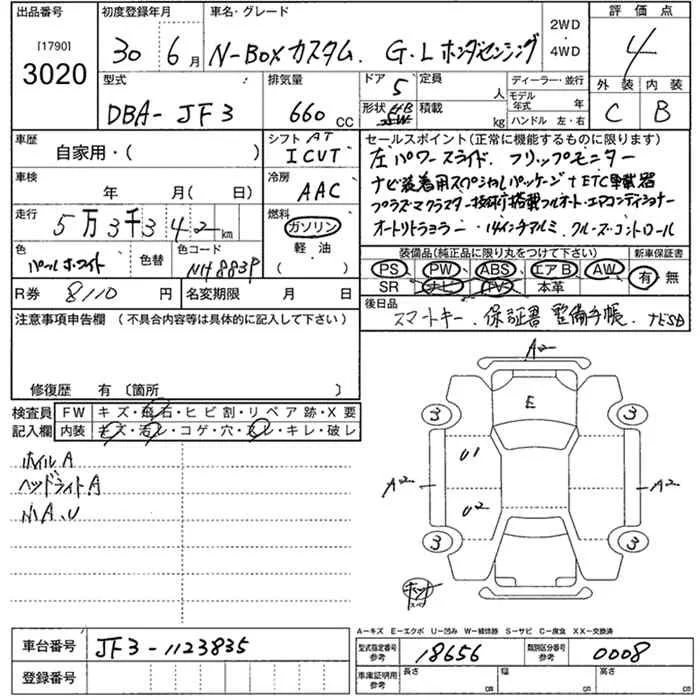 出品番号 初度登録年月 車名・グレード 2WD ・ 4WD 評価点
[1790] 3020 30 6月 N-BOXカスタム. G・Lホンダセンシング 4
外装 内装
C B
型式 排気量 ドア 5 定員 人 ディーラー・並行
DBA-JF3 660 CC 形状 積載 kg モデル年式 年
ハンドル 左・右
車歴 シフト AT セールスポイント(正常に機能するものに限ります)
自家用・( ) ICVT 左パワースライド. フリップモニター
車検 冷房 ナビ装着用スペシャルパッケージ+ETC車載器
年 月( 日) AAC プラズマクラスター技術搭載フルオートエアコンディショナー
走行 5万3千342km 燃料 ガソリン オートリトラミラー・14インチアルミ.クルーズコントロール
軽・油
( )
色 パールホワイト 色替 色コード NH883P 装備品(純正品に限り丸をつけて下さい) 新車保証書
PS PW ABS エアB AW 有・無
SR ナビ TV 本革
R券 8110 円 名変期限 月 日 後日品
スマートキー. 保証書 整備手帳.
注意事項申告欄(不具合内容等は具体的に記入して下さい)
修復歴 有〔箇所 〕
検査員 FW キズ・飛石・ヒビ割・リペア跡・X要
記入欄 内装 キズ・汚レ・コゲ・穴・スレ・キレ・破レ
ホイルA
ヘッドライトA
小A.U
A2
E
3 3
U1
A2 A2
U2
3 3
A-キズ E-エクボ U-凹み W-補修跡 S-サビ C-腐食 XX-交換済
車台番号 JF3-1123835 型式指定番号 参考 18656 類別区分番号 参考 0008
登録番号 車庫証明用 参考 長さ cm 幅 cm 高さ cm